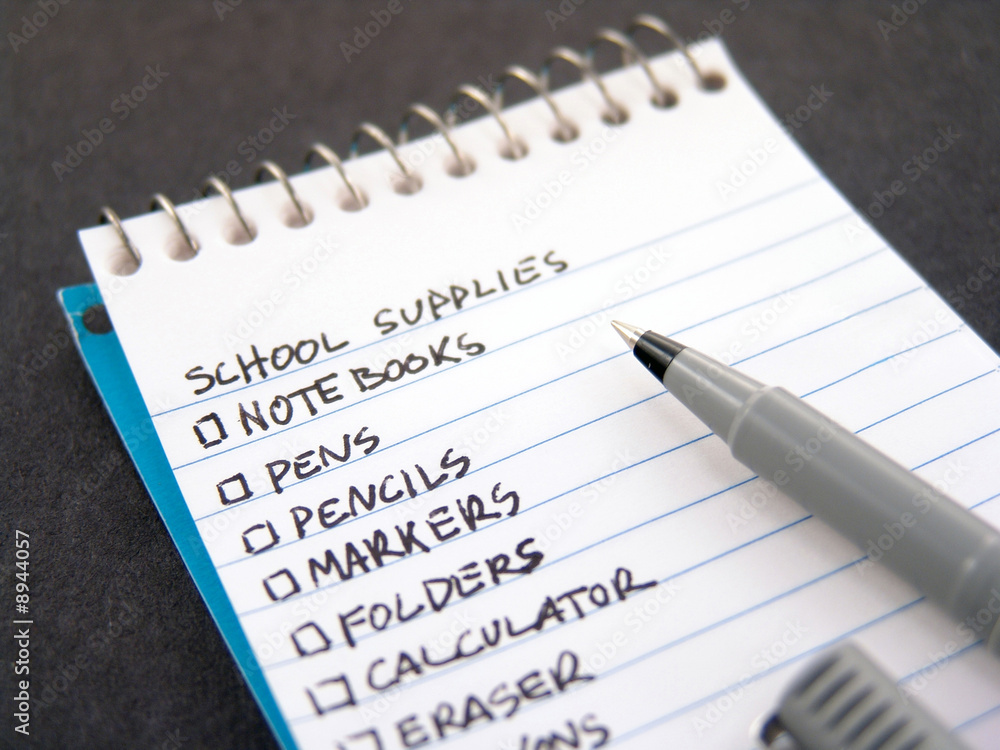 SCHOOL SUPPLIES
☐ NOTEBOOKS
☐ PENS
☐ PENCILS
☐ MARKERS
☐ FOLDERS
☐ CALCULATOR
☐ ERASER
Adobe Stock | #8944057